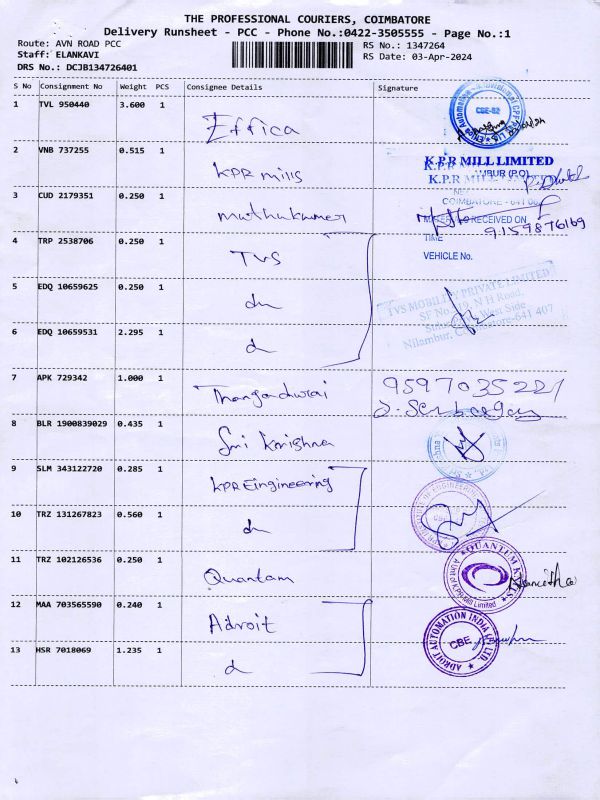 THE PROFESSIONAL COURIERS, COIMBATORE
Delivery Runsheet - PCC - Phone No.:0422-3505555 - Page No.:1
Route: AVN ROAD PCC
RS No.: 1347264
Staff: ELANKAVI
RS Date: 03-Apr-2024
DRS No.: DCJB134726401
S No Consignment No Weight PCS Consignee Details Signature
1 TVL 950440 3.600 1 Effica
CBE-62
2 VNB 737255 0.515 1 KPR mills
K.P.R MILL LIMITED
K.P.R MILL LIMITED
COIMBATORE - 641
3 CUD 2179351 0.250 1 muthukumar
RECEIVED ON
9159876169
TIME
VEHICLE No.
4 TRP 2538706 0.250 1 TVS
5 EDQ 10659625 0.250 1 do
TVS MOBILITY PRIVATE LIMITED
SF No. 119, N H Road,
West Side
Nilambur, Coimbatore-641 407
6 EDQ 10659531 2.295 1 d
7 APK 729342 1.000 1 Thangadurai
9597035221
8 BLR 1900839029 0.435 1 Sri Krishna
9 SLM 343122720 0.285 1 KPR Eingineering
10 TRZ 131267823 0.560 1 do
11 TRZ 102126536 0.250 1 Quantam
QUANTUM KNITS
A Unit of K.P.R. Mill Limited
12 MAA 703565590 0.240 1 Adroit
ADROIT AUTOMATION INDIA (P) LTD.
CBE
13 HSR 7018069 1.235 1 d